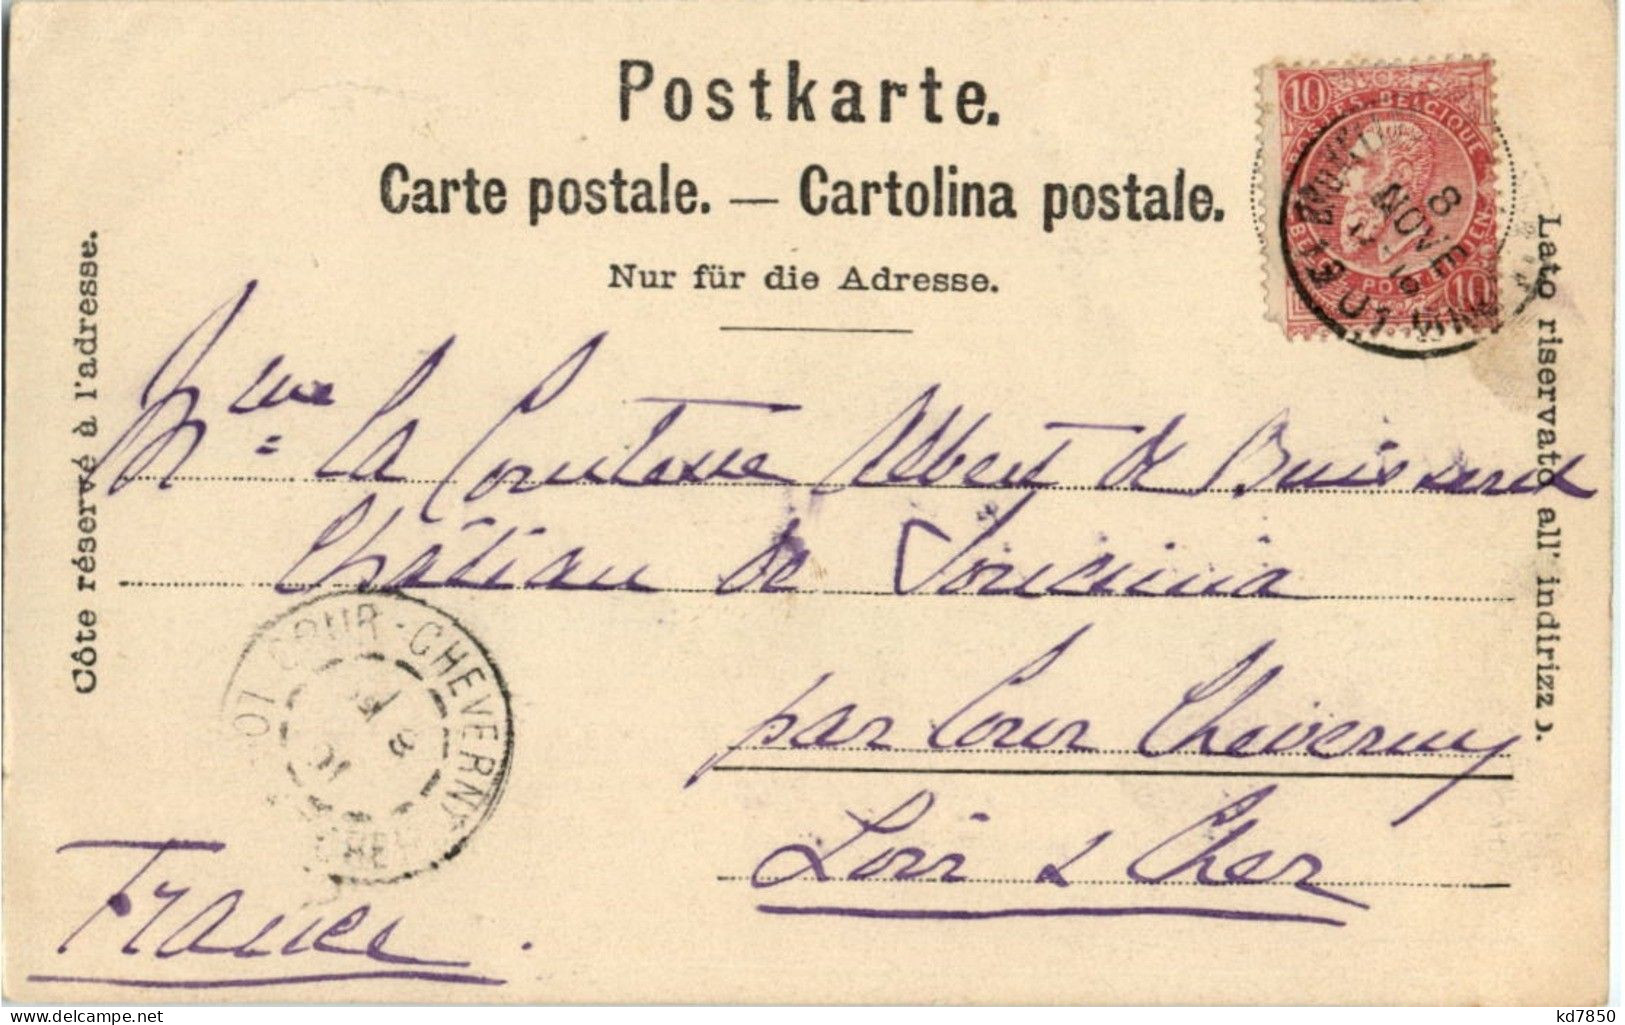 Postkarte.
Carte postale. — Cartolina postale.
Nur für die Adresse.
Côte réservé à l'adresse.
Lato riservato all' indirizzo.
10 10
POSTES BELGIQUE
10
8
NOVE
Mme La Comtesse Albert de Buissard
Château de
par Cour Cheverny
Loir & Cher
France.
COUR-CHEVERNY
CHER
kd7850